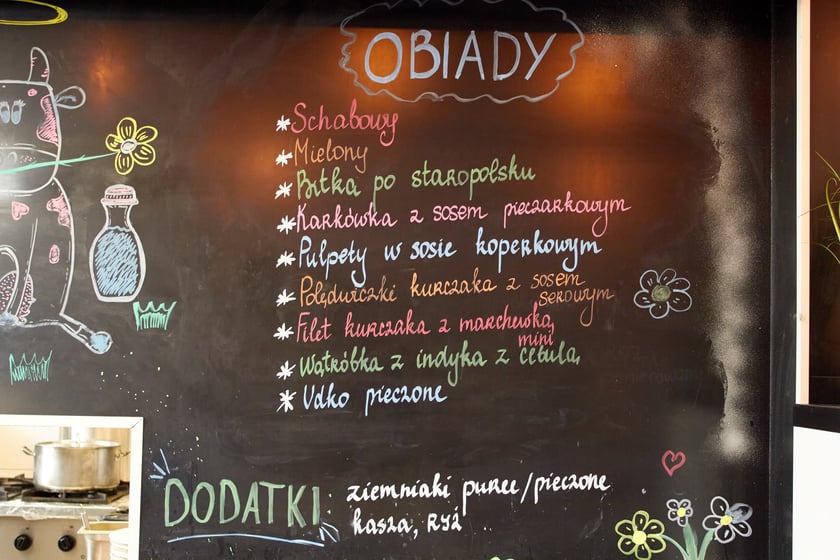 OBIADY
*Schabowy
*Mielony
*Bitka po staropolsku
*Karkówka z sosem pieczarkowym
*Pulpety w sosie koperkowym
*Polędwiczki kurczaka z sosem
serowym
*Filet kurczaka z marchewką
mini
*Wątróbka z indyka z cebulą
*Udko pieczone
DODATKI ziemniaki puree/pieczone
kasza, RYŻ